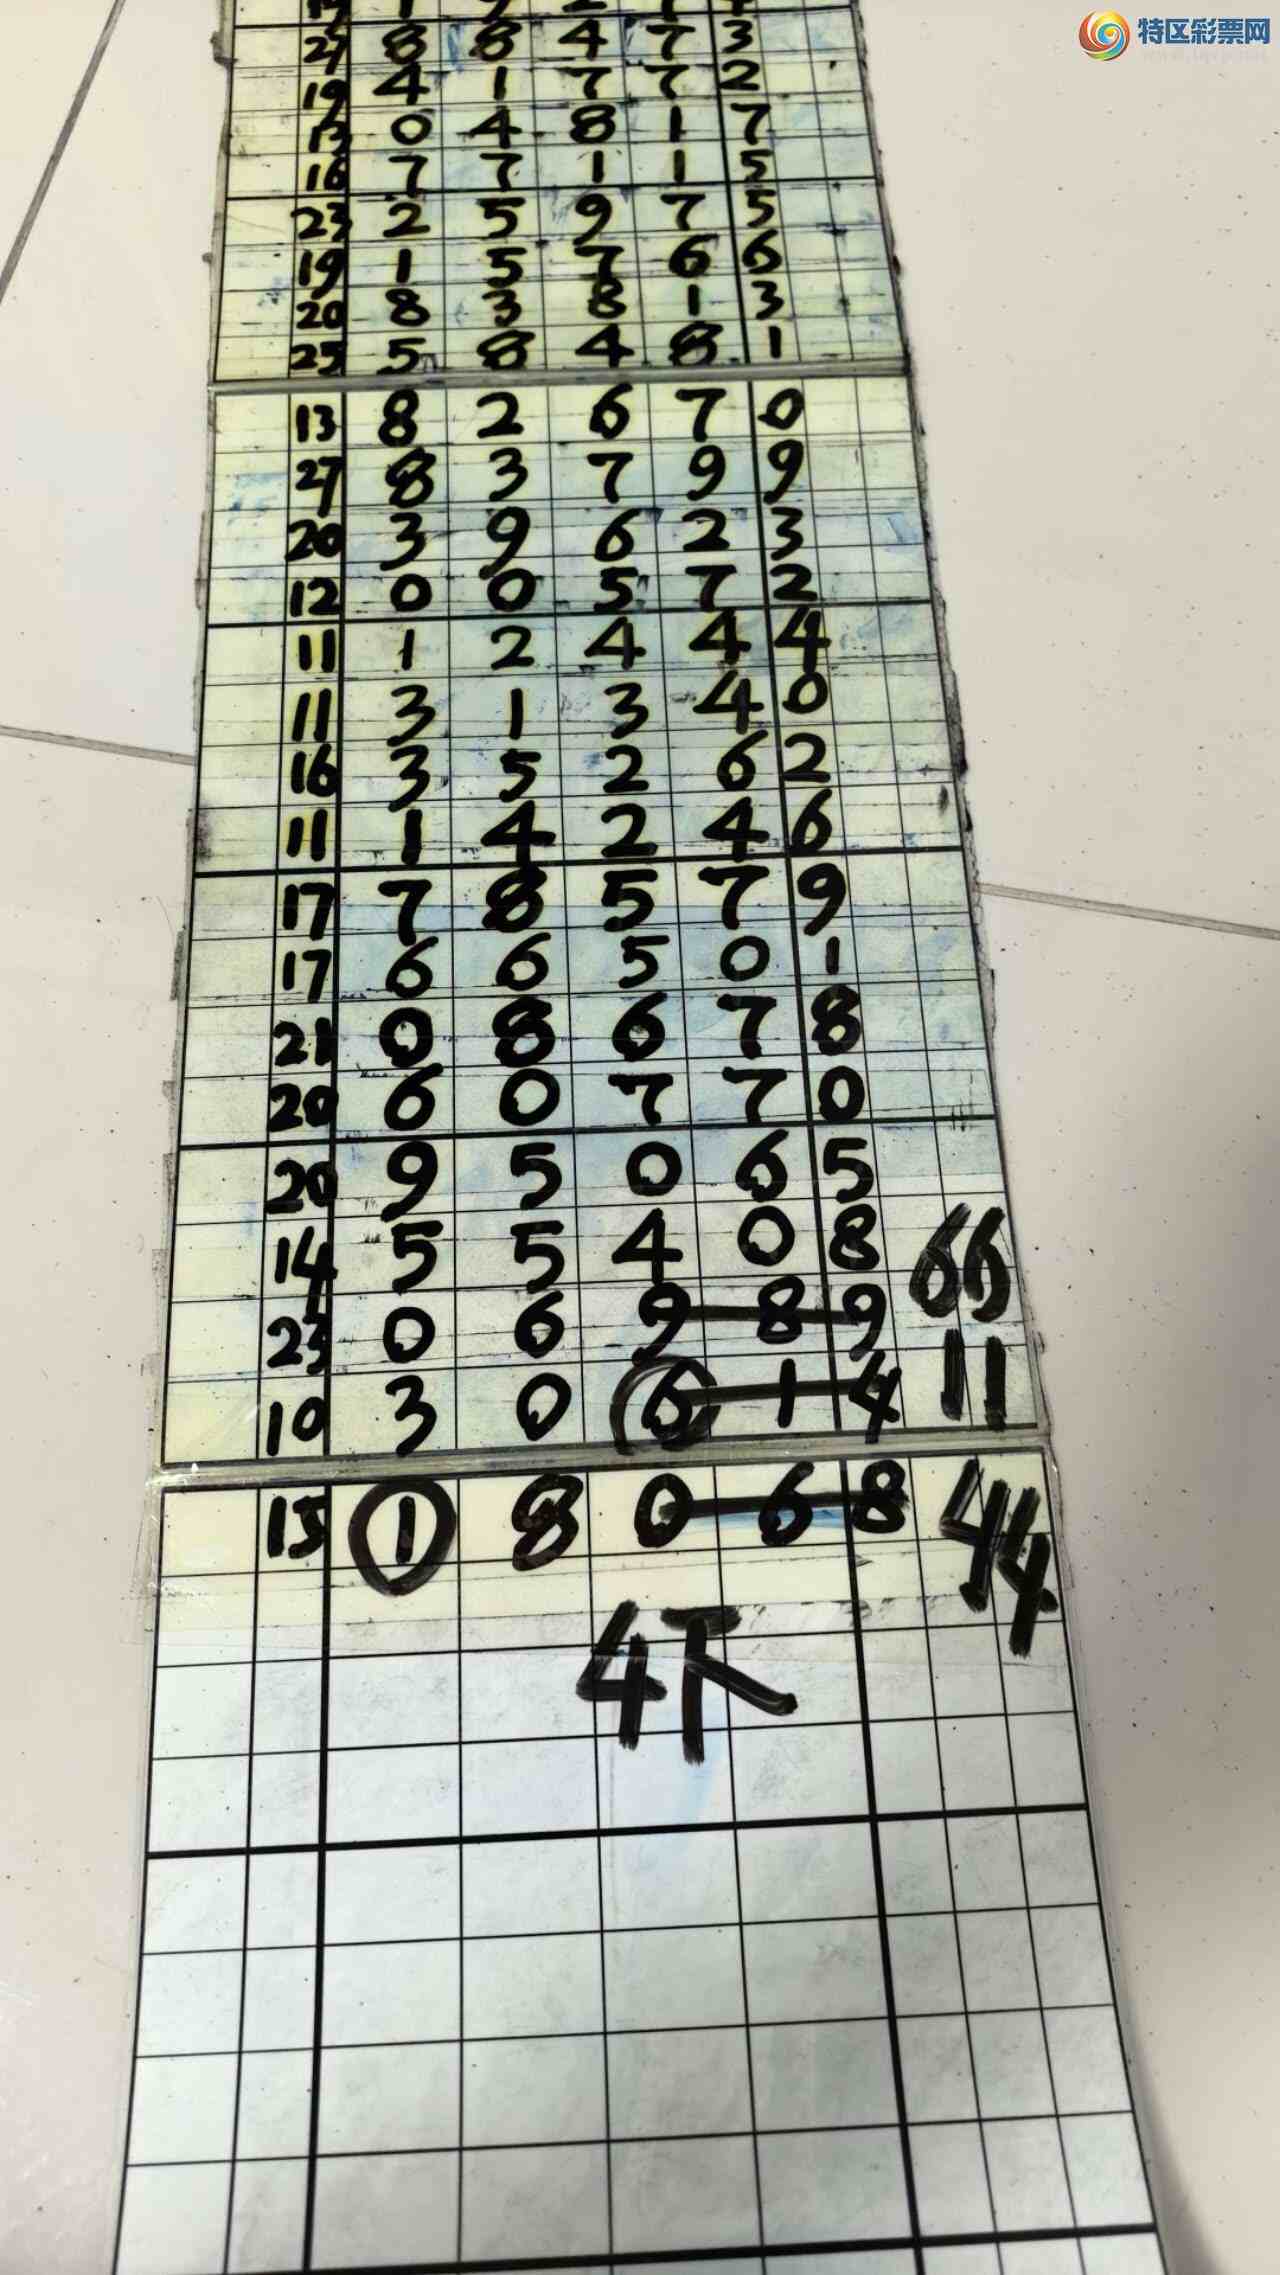 特区彩票网
27 8 8 4 7 3
19 4 1 7 7 2
13 0 4 8 1 7
16 7 7 1 1 5
23 2 5 9 7 5
19 1 5 7 6 6
20 8 3 8 1 3
25 5 8 4 8 1
13 8 2 6 7 0
27 8 3 7 9 9
20 3 9 6 2 3
12 0 0 5 7 2
11 1 2 4 4 4
11 3 1 3 4 0
16 3 5 2 6 2
11 1 4 2 4 6
17 7 8 5 7 9
17 6 6 5 0 1
21 0 8 6 7 8
20 6 0 7 7 0
20 9 5 0 6 5
14 5 5 4 0 8 66
23 0 6 9 8 9
10 3 0 6 1 4 11
15 1 8 0 6 8 44
4下